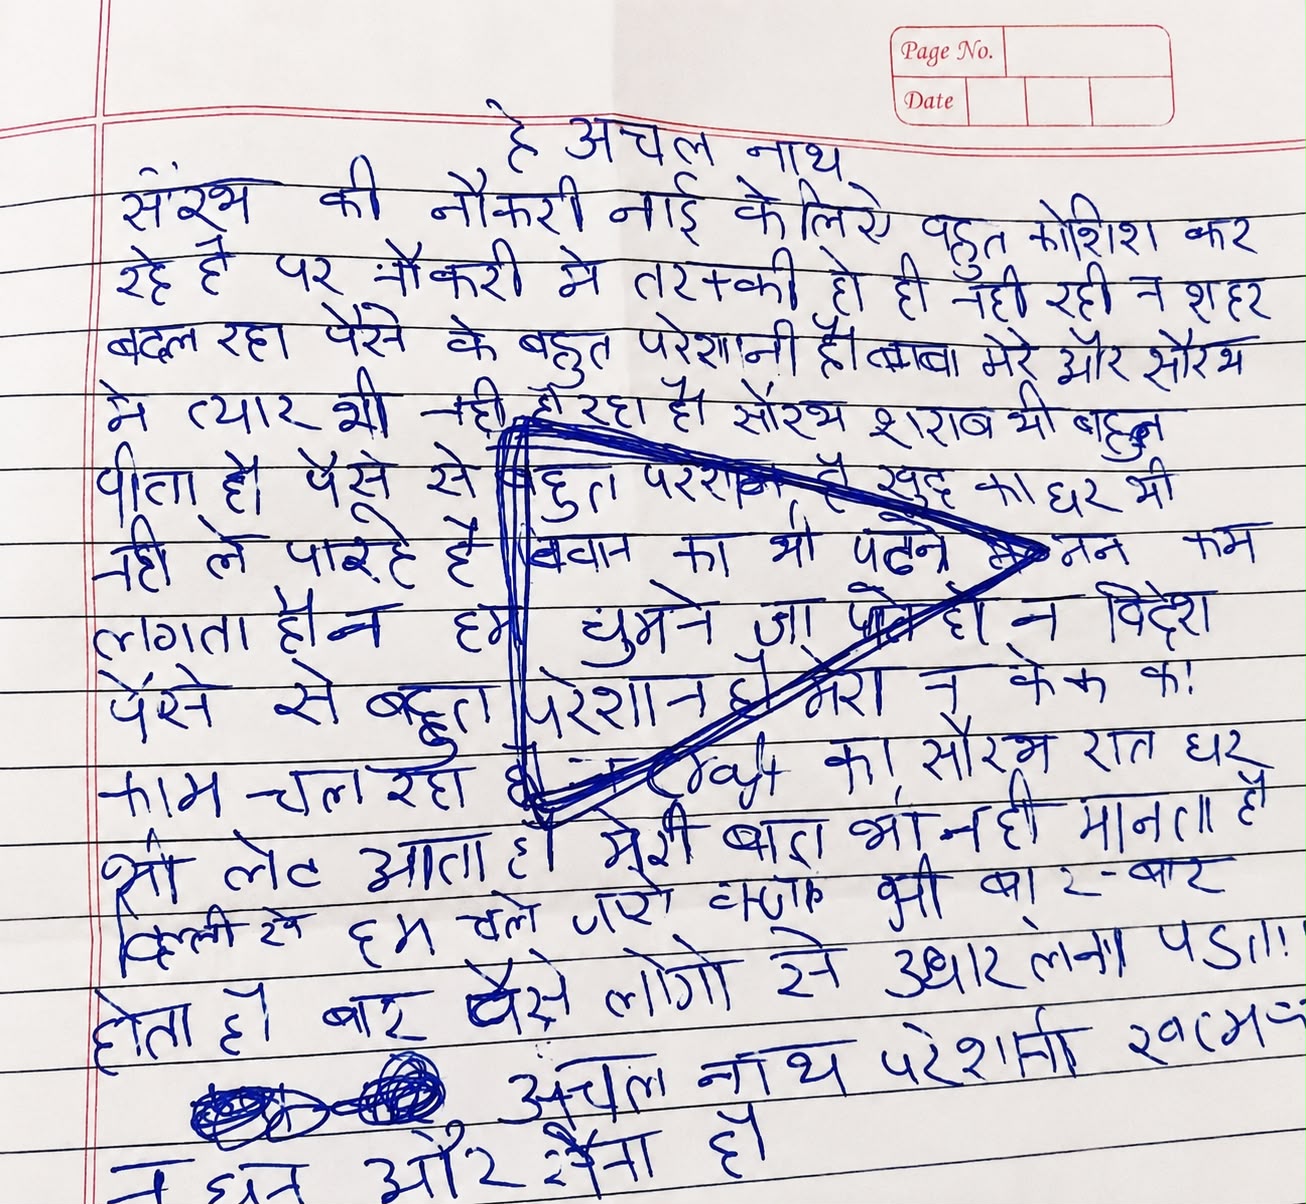 Page No.
Date
हे अचल नाथ
सौरभ की नौकरी नाई के लिए बहुत कोशिश कर
रहे है पर नौकरी मे तरक्की हो ही नही रही न शहर
बदल रहा पैसे के बहुत परेशानी है। बाबा मेरे और सौरभ
मे त्यार भी नही हो रहा है। सौरभ शराब भी बहुत
पीता है। पैसे से बहुत परेशान है खुद का घर भी
नही ले पा रहे है का भी पढने मे मन कम
लगता है। न हम घुमने जा पाते है। न विदेश
पैसे से बहुत परेशान है। मेरा न केक का
काम चल रहा है न Craft का सौरभ रात घर
भी लेट आता है। मेरी बात भी नही मानता है
दिल्ली से हम चले जाऐ भी बार-बार
होता है। बार पैसे लोगो से उधार लेना पडता
अचल नाथ परेशानी खत्म
न धन और है।